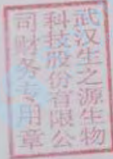 武汉生之源生物
科技股份有限公
司财务专用章